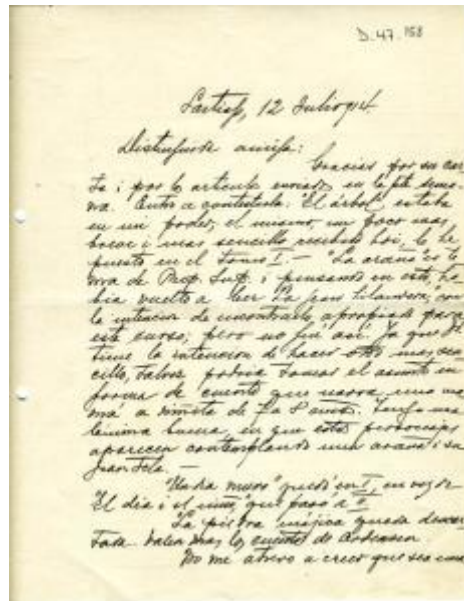 D.47.158
12 Julio 914.
Distinguida amiga:
Gracias por su car
ta i por lo artículo enviado en la pte. sema
na. Entro a contestarla. "El árbol" estaba
en mi poder; el mismo, un poco mas
breve i mas sencillo recibido hoi, lo he
puesto en el Tomo I. — "La araña" es te
ma de Prep. Sup. i pensando en esto, ha
bia vuelto a leer "La gran hilandera", con
la intencion de encontrarlo apropiado para
este curso; pero no fué así. Ya que Ud.
tiene la intencion de hacer otro mas sen
cillo, talvez podria tomar el asunto en
forma de cuento que narra una ma
má a de Tengo una
lámina buena, en que estos personajes
aparecen contemplando una araña i su
gran tela. —
quedó en I, en vez de
"El dia i el que pasó a II
"La piedra májica" queda descar
tada. Valen mas los cuentos de Andersen.
No me atrevo a creer que sea una